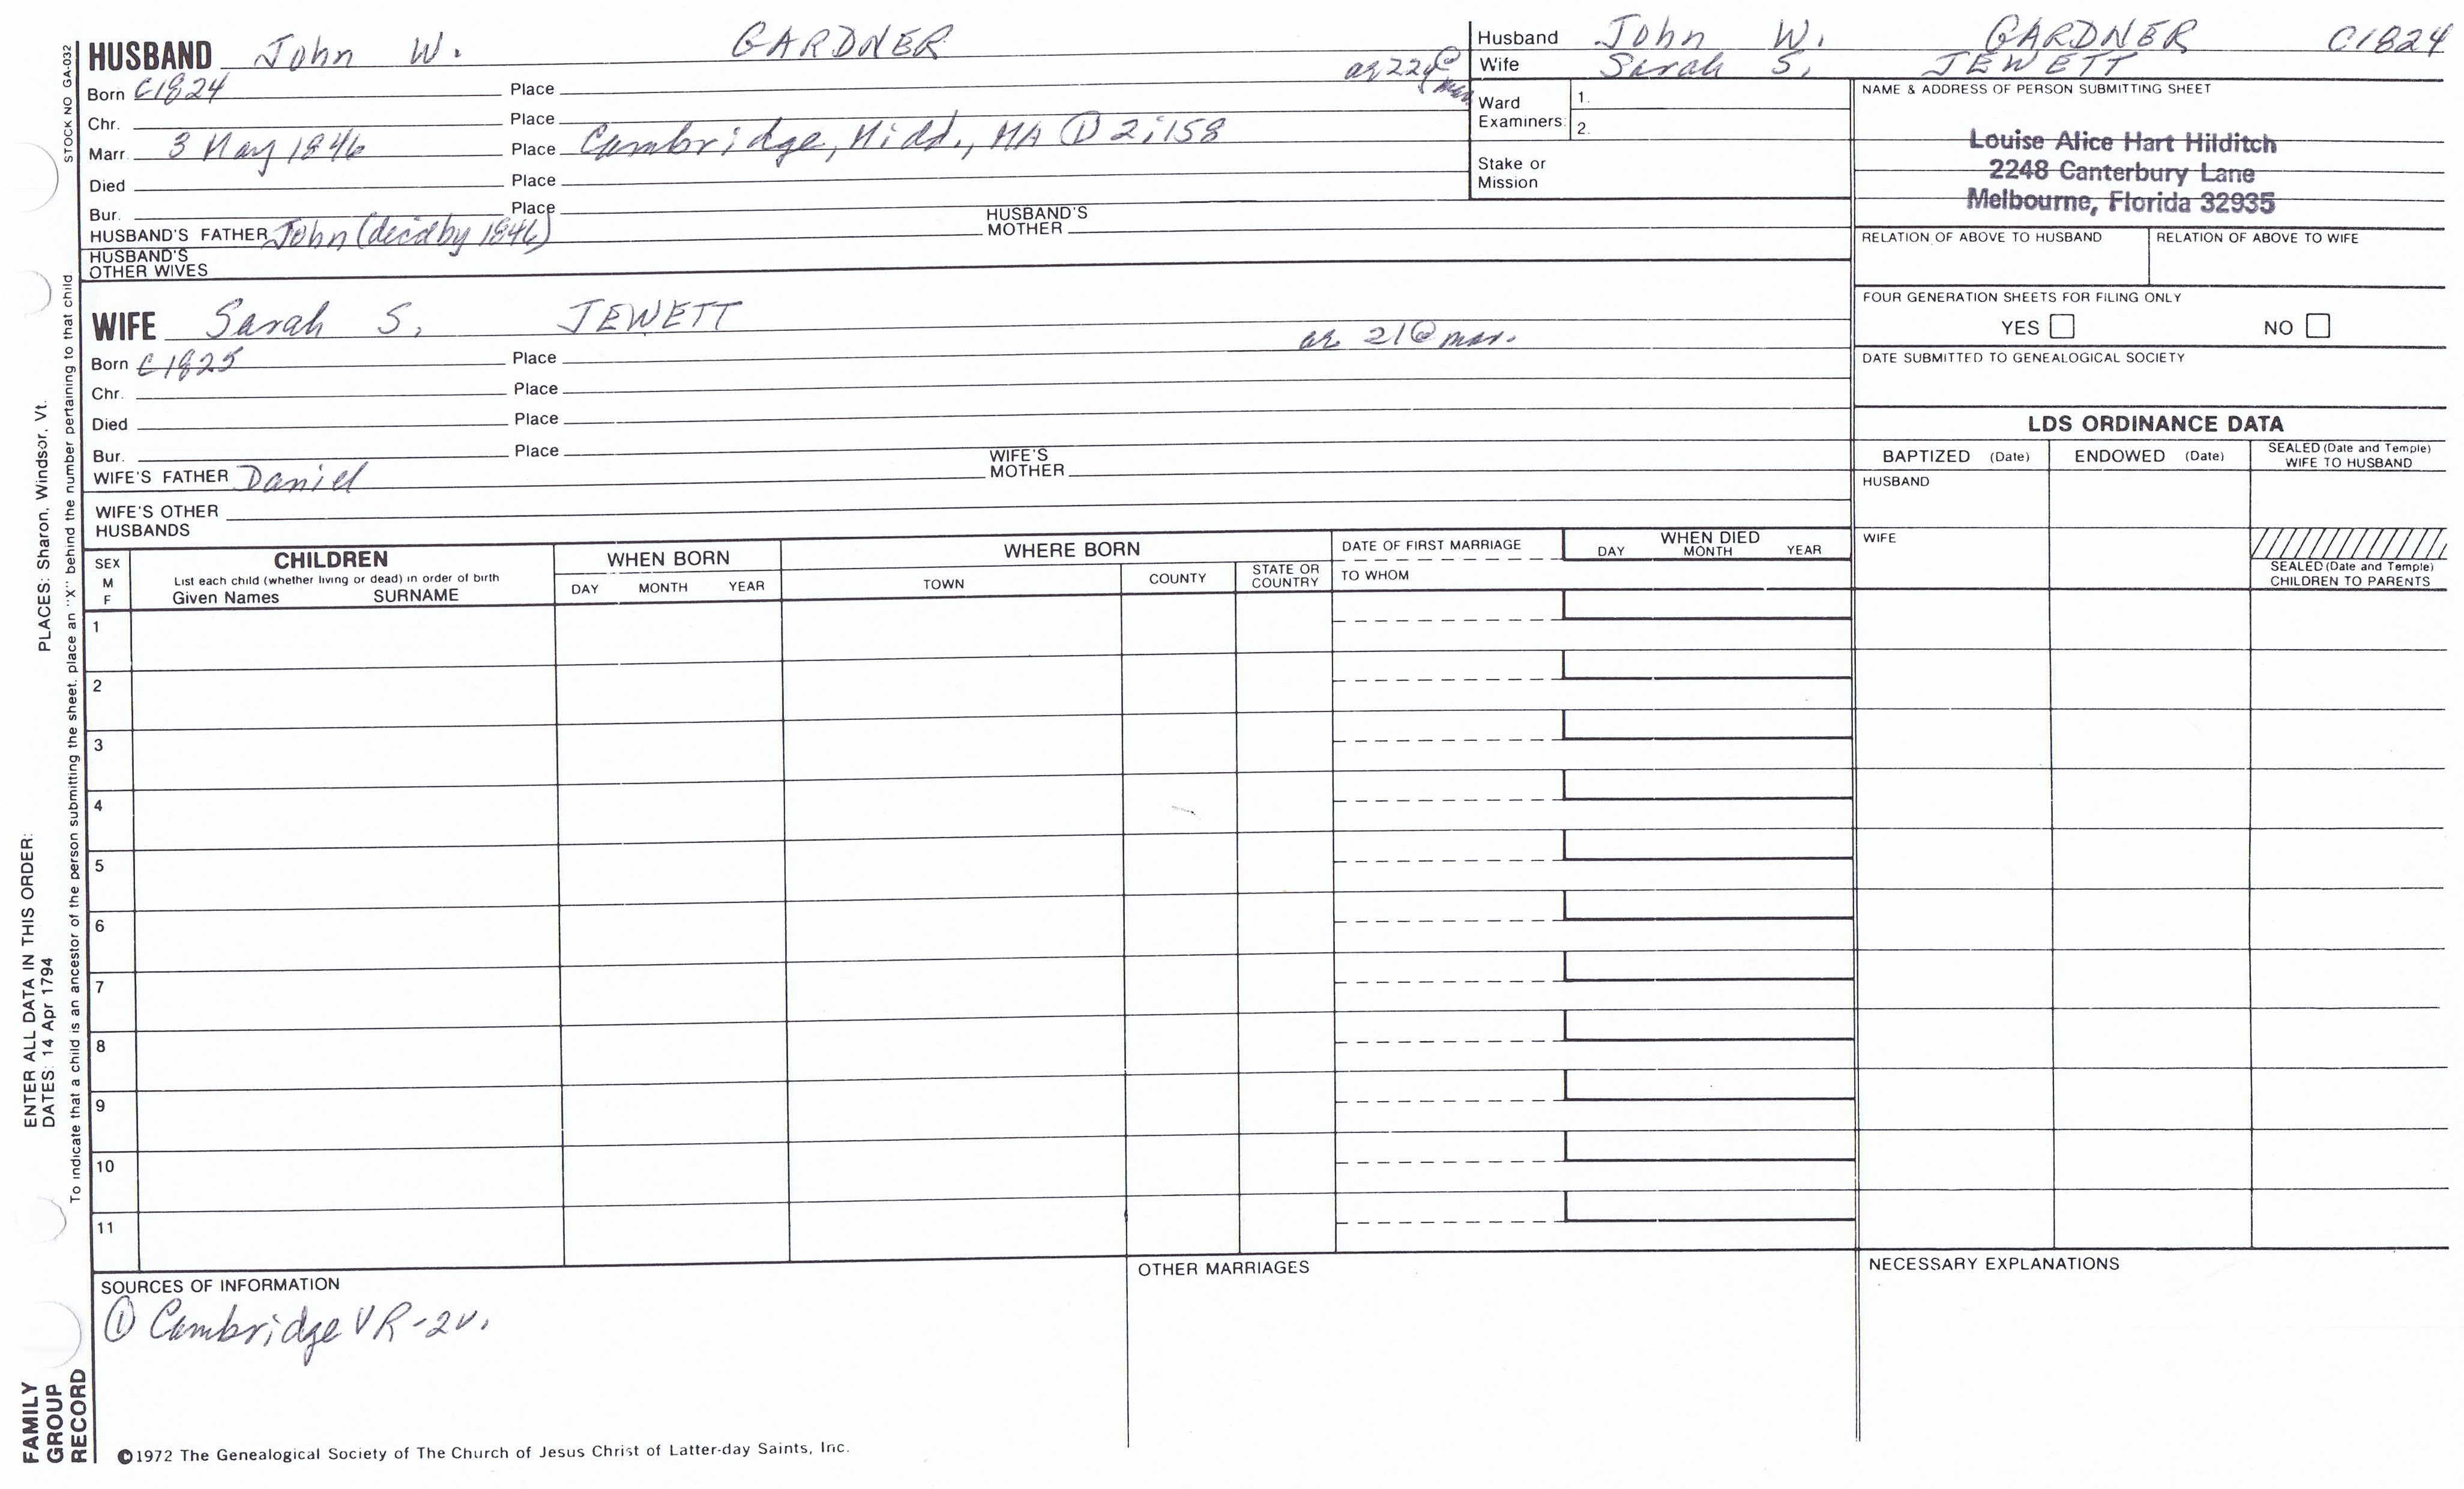 STOCK NO GA-032
HUSBAND John W. GARDNER
Born C1824 Place
ag 22y @ mar
Chr. Place
Marr. 3 May 1846 Place Cambridge, Midd., MA ① 2:158
Died Place
Bur. Place
HUSBAND'S FATHER John (decd by 1846) HUSBAND'S MOTHER
HUSBAND'S OTHER WIVES
Husband John W. GARDNER C1824
Wife Sarah S. JEWETT
Ward Examiners: 1.
2.
Stake or Mission
NAME & ADDRESS OF PERSON SUBMITTING SHEET
Louise Alice Hart Hilditch
2248 Canterbury Lane
Melbourne, Florida 32935
RELATION OF ABOVE TO HUSBAND RELATION OF ABOVE TO WIFE
FOUR GENERATION SHEETS FOR FILING ONLY
YES NO
DATE SUBMITTED TO GENEALOGICAL SOCIETY
WIFE Sarah S. JEWETT
ag 21 @ mar.
Born C1825 Place
Chr. Place
Died Place
Bur. Place
WIFE'S FATHER Daniel WIFE'S MOTHER
WIFE'S OTHER HUSBANDS
LDS ORDINANCE DATA
BAPTIZED (Date) ENDOWED (Date) SEALED (Date and Temple) WIFE TO HUSBAND
HUSBAND
WIFE
SEALED (Date and Temple) CHILDREN TO PARENTS
SEX M F
CHILDREN
List each child (whether living or dead) in order of birth
Given Names SURNAME
WHEN BORN
DAY MONTH YEAR
WHERE BORN
TOWN COUNTY STATE OR COUNTRY
DATE OF FIRST MARRIAGE
TO WHOM
WHEN DIED
DAY MONTH YEAR
1
2
3
4
5
6
7
8
9
10
11
SOURCES OF INFORMATION
① Cambridge VR-2v.
OTHER MARRIAGES
NECESSARY EXPLANATIONS
©1972 The Genealogical Society of The Church of Jesus Christ of Latter-day Saints, Inc.
FAMILY GROUP RECORD
ENTER ALL DATA IN THIS ORDER:
DATES: 14 Apr 1794
PLACES: Sharon, Windsor, Vt.
To indicate that a child is an ancestor of the person submitting the sheet, place an "X" behind the number pertaining to that child